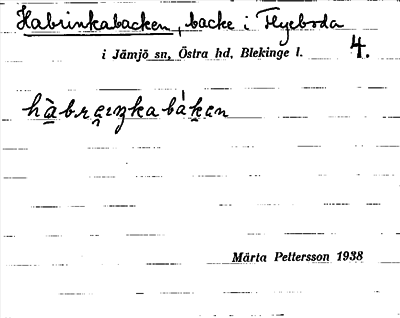 Habrinkabacken, backe i Flyeboda
i Jämjö sn, Östra hd, Blekinge l. 4.
Märta Pettersson 1938